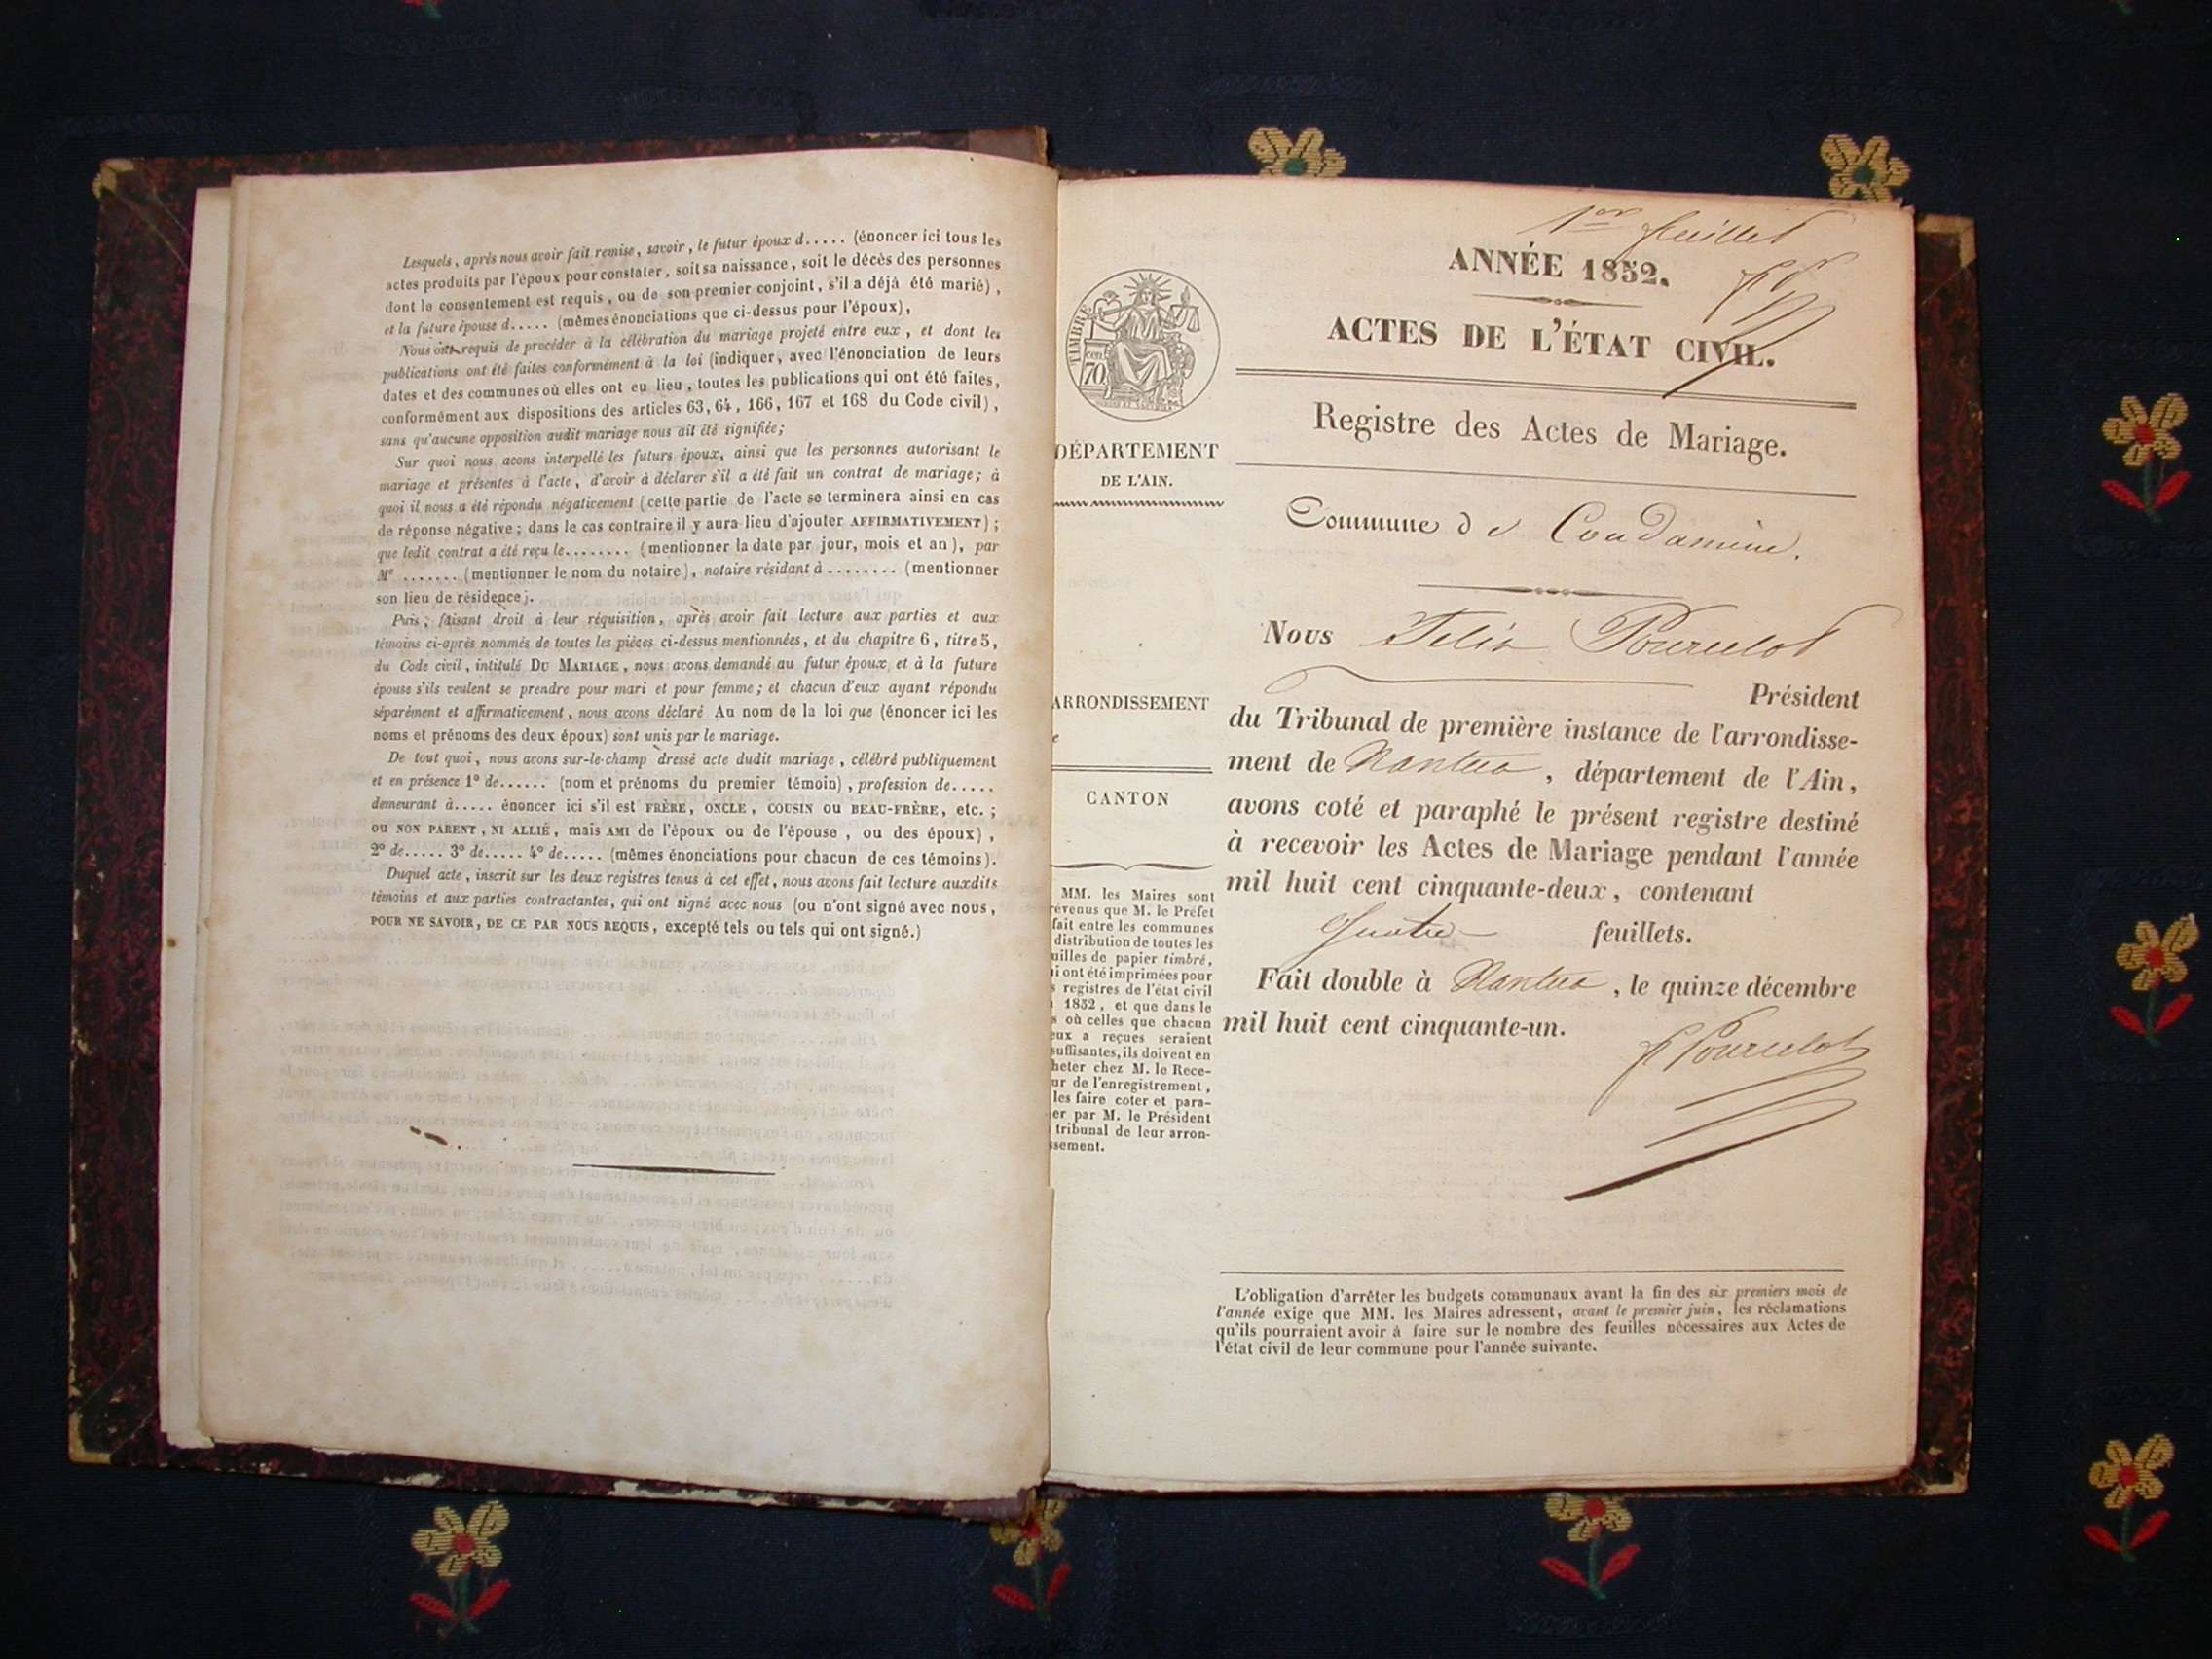 Lesquels, après nous avoir fait remise, savoir, le futur époux d..... (énoncer ici tous les
actes produits par l'époux pour constater, soit sa naissance, soit le décès des personnes
dont le consentement est requis, ou de son premier conjoint, s'il a déjà été marié),
et la future épouse d..... (mêmes énonciations que ci-dessus pour l'époux),
Nous ont requis de procéder à la célébration du mariage projeté entre eux, et dont les
publications ont été faites conformément à la loi (indiquer, avec l'énonciation de leurs
dates et des communes où elles ont eu lieu, toutes les publications qui ont été faites,
conformément aux dispositions des articles 63, 64, 166, 167 et 168 du Code civil),
sans qu'aucune opposition audit mariage nous ait été signifiée;
Sur quoi nous avons interpellé les futurs époux, ainsi que les personnes autorisant le
mariage et présentes à l'acte, d'avoir à déclarer s'il a été fait un contrat de mariage; à
quoi il nous a été répondu négativement (cette partie de l'acte se terminera ainsi en cas
de réponse négative; dans le cas contraire il y aura lieu d'ajouter AFFIRMATIVEMENT);
que ledit contrat a été reçu le........ (mentionner la date par jour, mois et an), par
Me ....... (mentionner le nom du notaire), notaire résidant à ........ (mentionner
son lieu de résidence).
Puis, faisant droit à leur réquisition, après avoir fait lecture aux parties et aux
témoins ci-après nommés de toutes les pièces ci-dessus mentionnées, et du chapitre 6, titre 5,
du Code civil, intitulé DU MARIAGE, nous avons demandé au futur époux et à la future
épouse s'ils veulent se prendre pour mari et pour femme; et chacun d'eux ayant répondu
séparément et affirmativement, nous avons déclaré Au nom de la loi que (énoncer ici les
noms et prénoms des deux époux) sont unis par le mariage.
De tout quoi, nous avons sur-le-champ dressé acte dudit mariage, célébré publiquement
et en présence 1° de...... (nom et prénoms du premier témoin), profession de.....
demeurant à..... énoncer ici s'il est FRÈRE, ONCLE, COUSIN OU BEAU-FRÈRE, etc.;
ou NON PARENT, NI ALLIÉ, mais AMI de l'époux ou de l'épouse, ou des époux),
2° de..... 3° de..... 4° de..... (mêmes énonciations pour chacun de ces témoins).
Duquel acte, inscrit sur les deux registres tenus à cet effet, nous avons fait lecture auxdits
témoins et aux parties contractantes, qui ont signé avec nous (ou n'ont signé avec nous,
POUR NE SAVOIR, DE CE PAR NOUS REQUIS, excepté tels ou tels qui ont signé.)
1er feuillet
ANNÉE 1852.
ACTES DE L'ÉTAT CIVIL.
Registre des Actes de Mariage.
TIMBRE
cen
70
DÉPARTEMENT
DE L'AIN.
ARRONDISSEMENT
e
CANTON
MM. les Maires sont
révenus que M. le Préfet
fait entre les communes
distribution de toutes les
uilles de papier timbré,
i ont été imprimées pour
s registres de l'état civil
1852, et que dans le
s où celles que chacun
eux a reçues seraient
suffisantes, ils doivent en
heter chez M. le Rece-
ur de l'enregistrement,
les faire coter et para-
er par M. le Président
tribunal de leur arron-
ssement.
Commune de Condamine.
Nous Felix Pourcelot
Président
du Tribunal de première instance de l'arrondisse-
ment de Nantua, département de l'Ain,
avons coté et paraphé le présent registre destiné
à recevoir les Actes de Mariage pendant l'année
mil huit cent cinquante-deux, contenant
Quatre feuillets.
Fait double à Nantua, le quinze décembre
mil huit cent cinquante-un.
F Pourcelot
L'obligation d'arrêter les budgets communaux avant la fin des six premiers mois de
l'année exige que MM. les Maires adressent, avant le premier juin, les réclamations
qu'ils pourraient avoir à faire sur le nombre des feuilles nécessaires aux Actes de
l'état civil de leur commune pour l'année suivante.